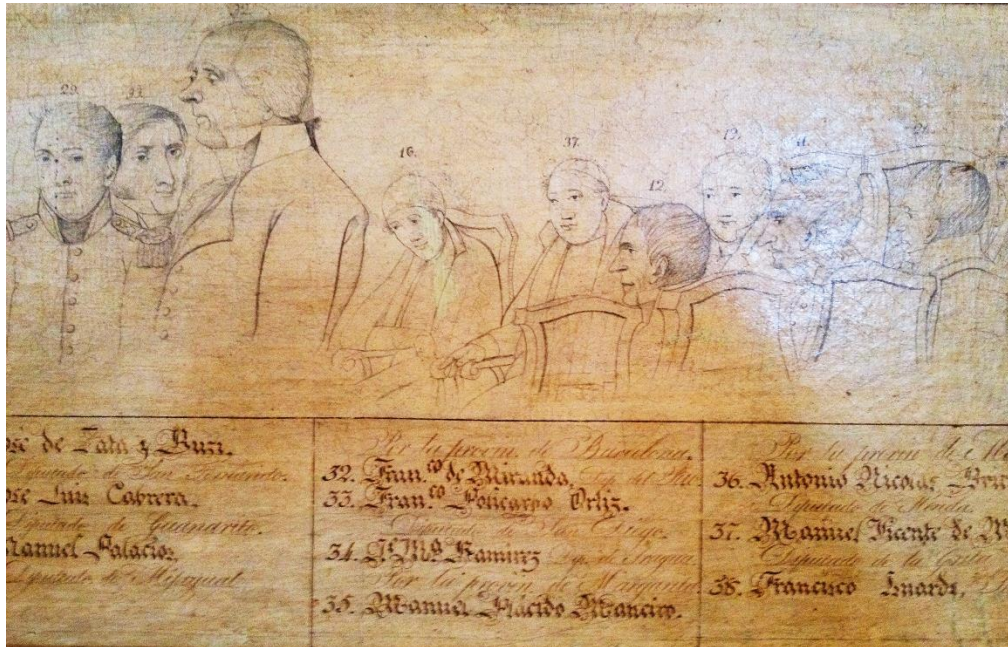 32.
29. 33.
16. 37. 12. 13. 11. 21.
José de Sata y Bussi.
Diputado de San Fernando.
José Luis Cabrera.
Diputado de Guanarito.
Manuel Palacios.
Diputado de Mijagual
Por la provin. de Barcelona.
32. Fran.co de Miranda, Dip. del Pao.
33. Fran.co Policarpo Ortiz.
Diputado de San Diego.
34. J.e M.a Ramirez Dip. de Aragua.
Por la provin. de Margarita.
35. Manuel Plácido Maneiro.
Por la provin de Mé
36. Antonio Nicolas Bric
Diputado de Merida.
37. Manuel Vicente de M
Diputado de la Grita
38. Francisco Isnardi,